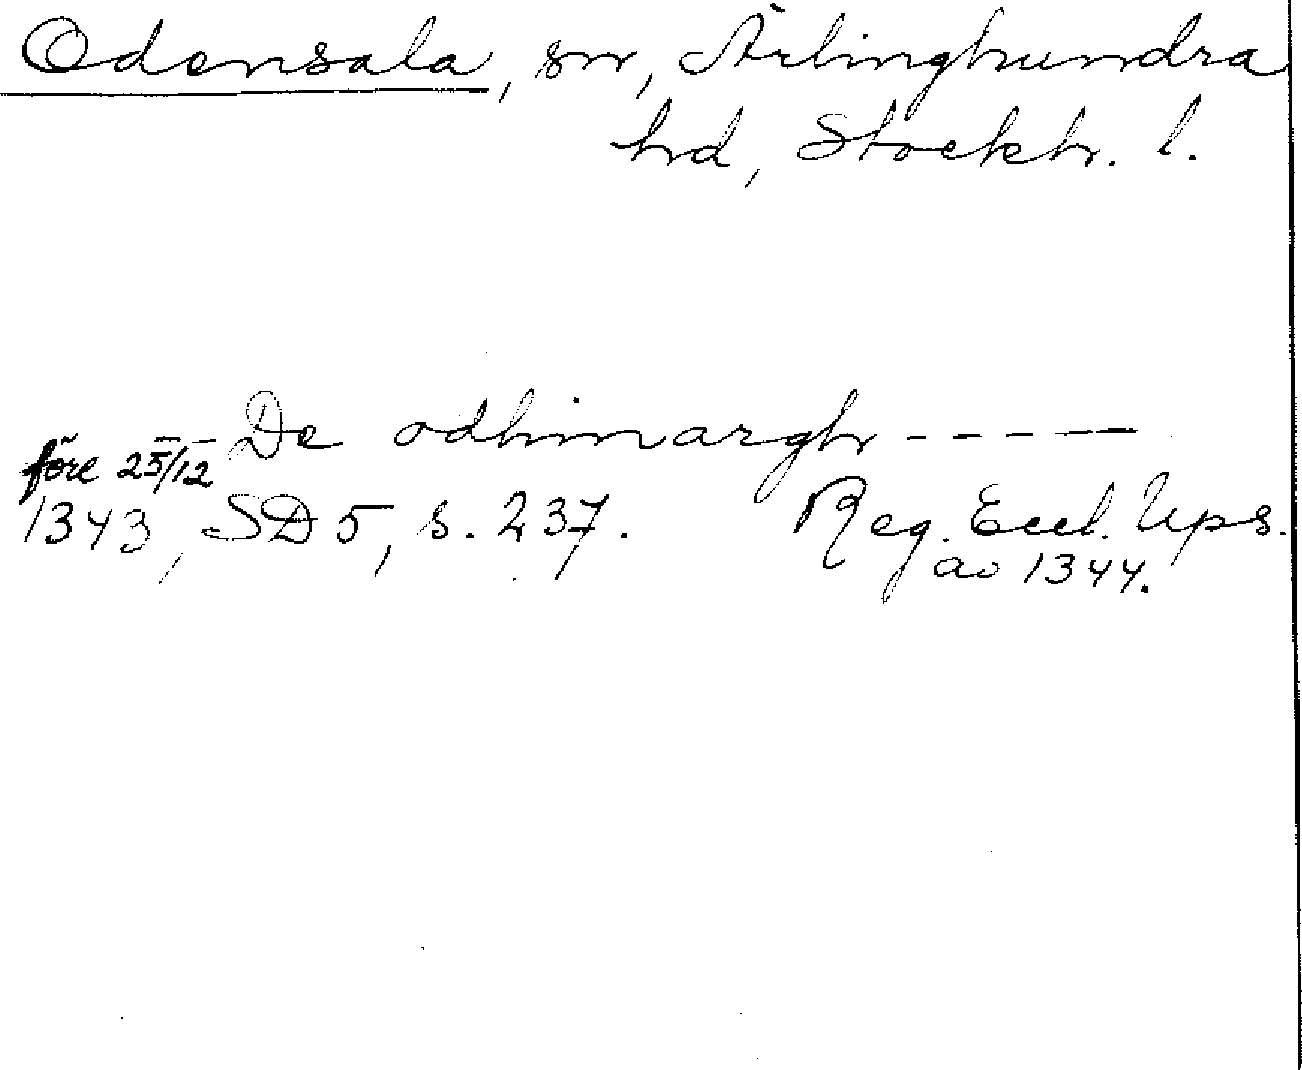 Odensala, sn, Ärlinghundra
hd, Stockh. l.
De odhinsargh - - - - -
före 25/12
1343, SD 5, s. 237. Reg. Eccl. Ups.
ao 1344.